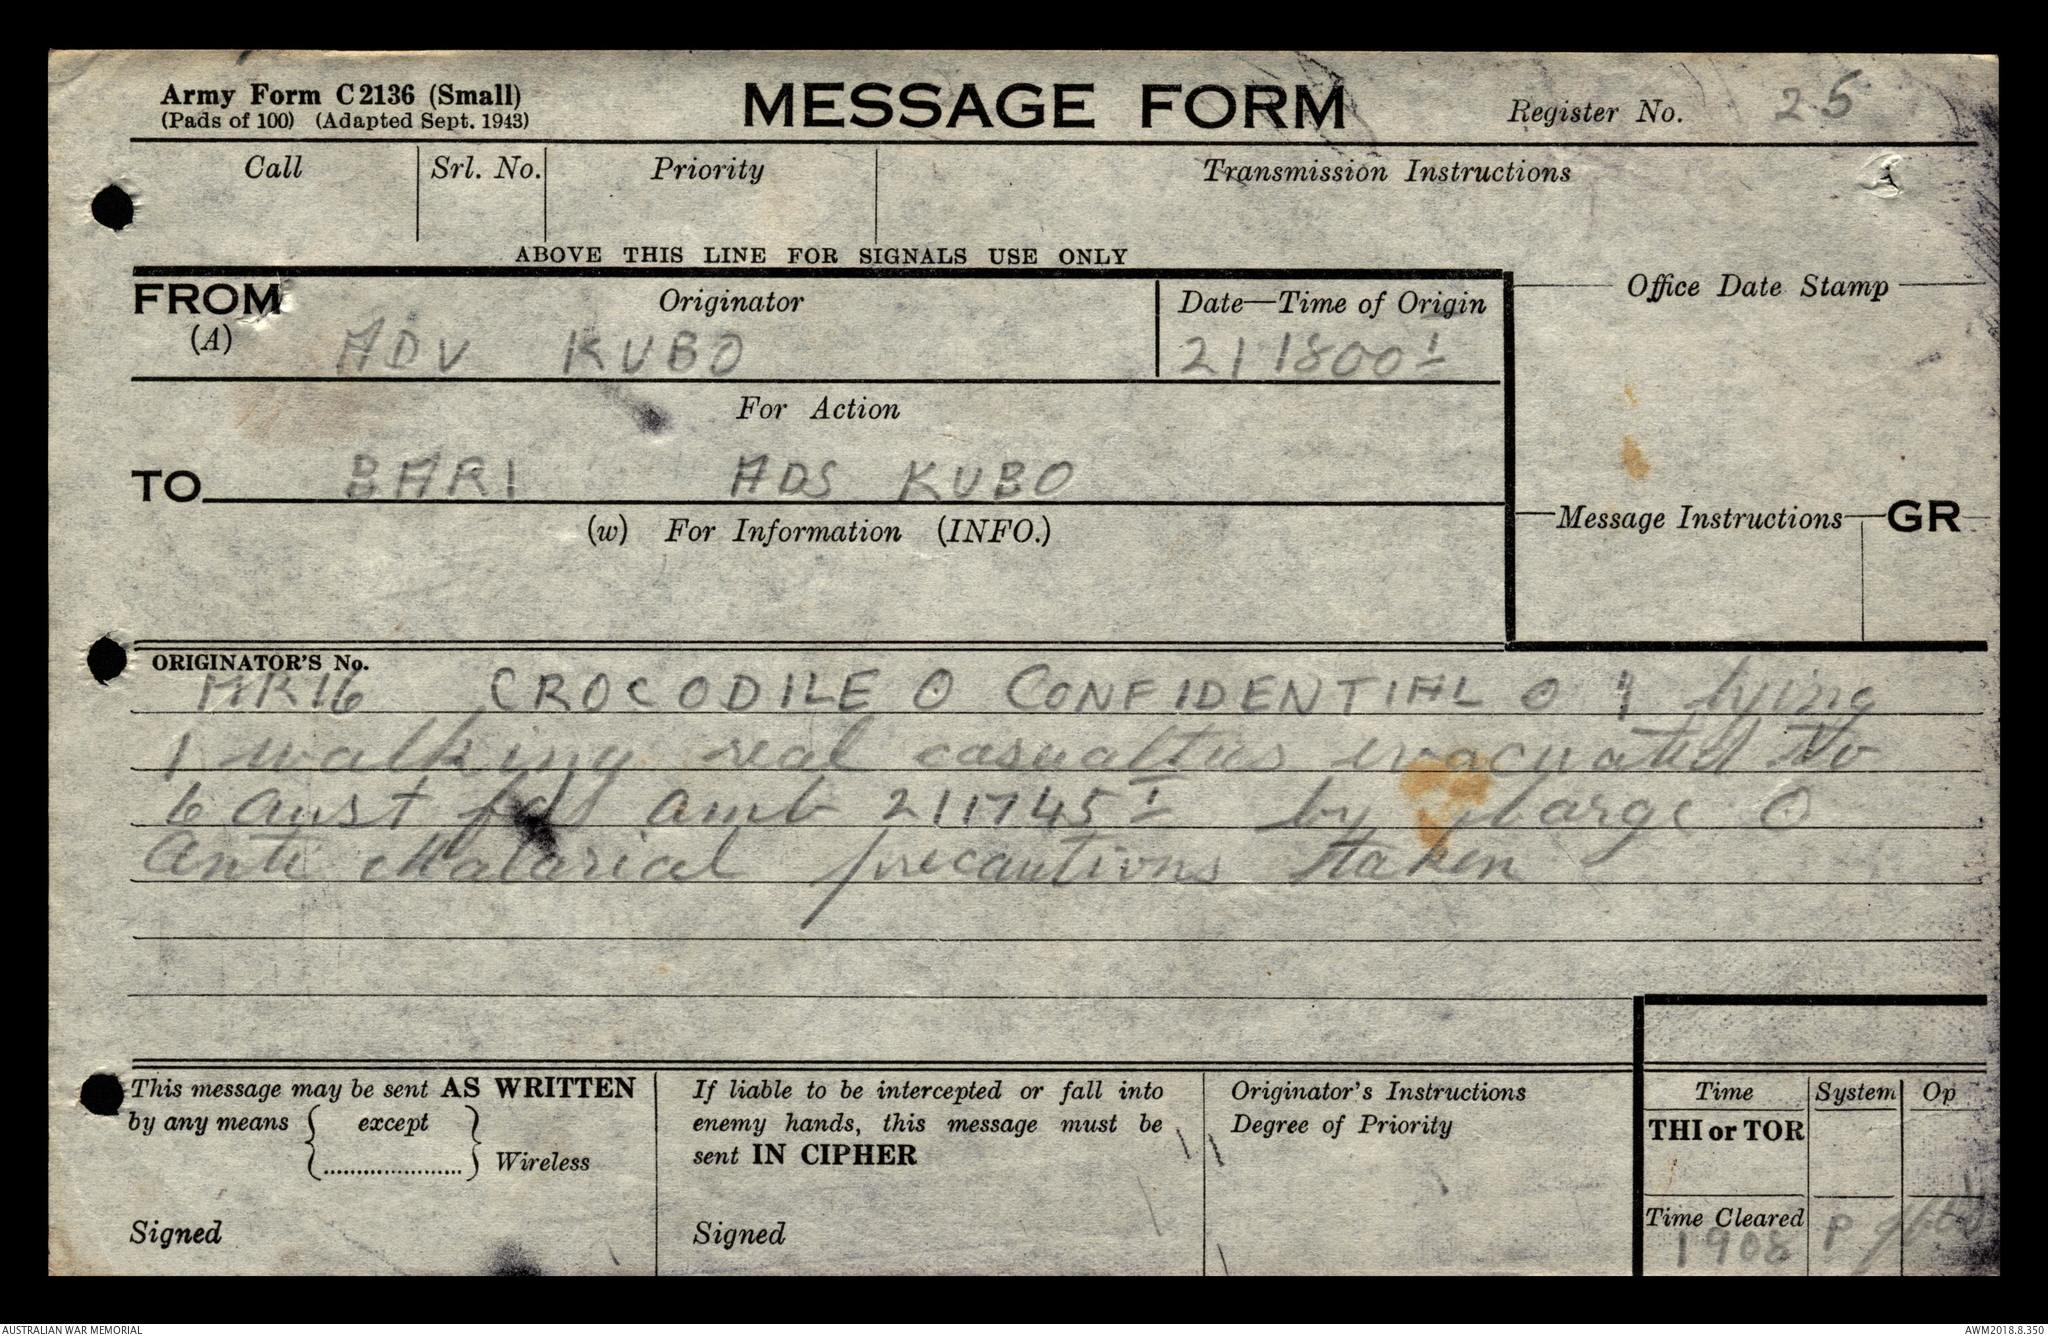 Army Form C2136 (Small)
(Pads of 100) (Adapted Sept. 1943)
MESSAGE FORM
Register No. 25
Call Srl. No. Priority Transmission Instructions
ABOVE THIS LINE FOR SIGNALS USE ONLY
FROM Originator Date—Time of Origin Office Date Stamp
(A) ADV KUBO 211800 I
For Action
TO BARI ADS KUBO
(w) For Information (INFO.) Message Instructions GR
ORIGINATOR'S No.
AR16 CROCODILE O CONFIDENTIAL O 1 lying
1 walking real casualties evacuated to
6 aust fds amb 211745 I by barge O
Anti Malarial precautions taken
This message may be sent AS WRITTEN
by any means { except
..................... } Wireless
Signed
If liable to be intercepted or fall into
enemy hands, this message must be
sent IN CIPHER
Signed
Originator's Instructions
Degree of Priority
Time System Op
THI or TOR
Time Cleared
1908 P
AUSTRALIAN WAR MEMORIAL AWM2018.8.350